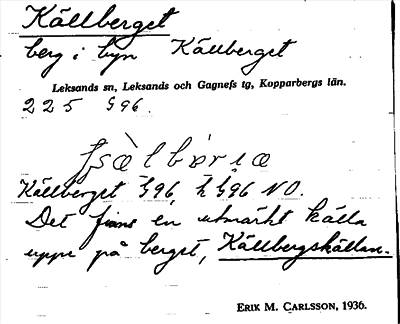 Källberget
berg i byn Källberget
Leksands sn, Leksands och Gagnefs tg, Kopparbergs län.
225 §96.
Källberget §96, h §96 NO.
Det finns en utmärkt källa
uppe på berget, Källbergskällan.
ERIK M. CARLSSON, 1936.